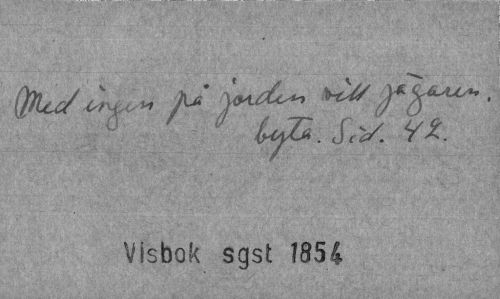 Med ingen på jorden vill jägaren.
byta. Sid. 42.
Visbok sgst 1854